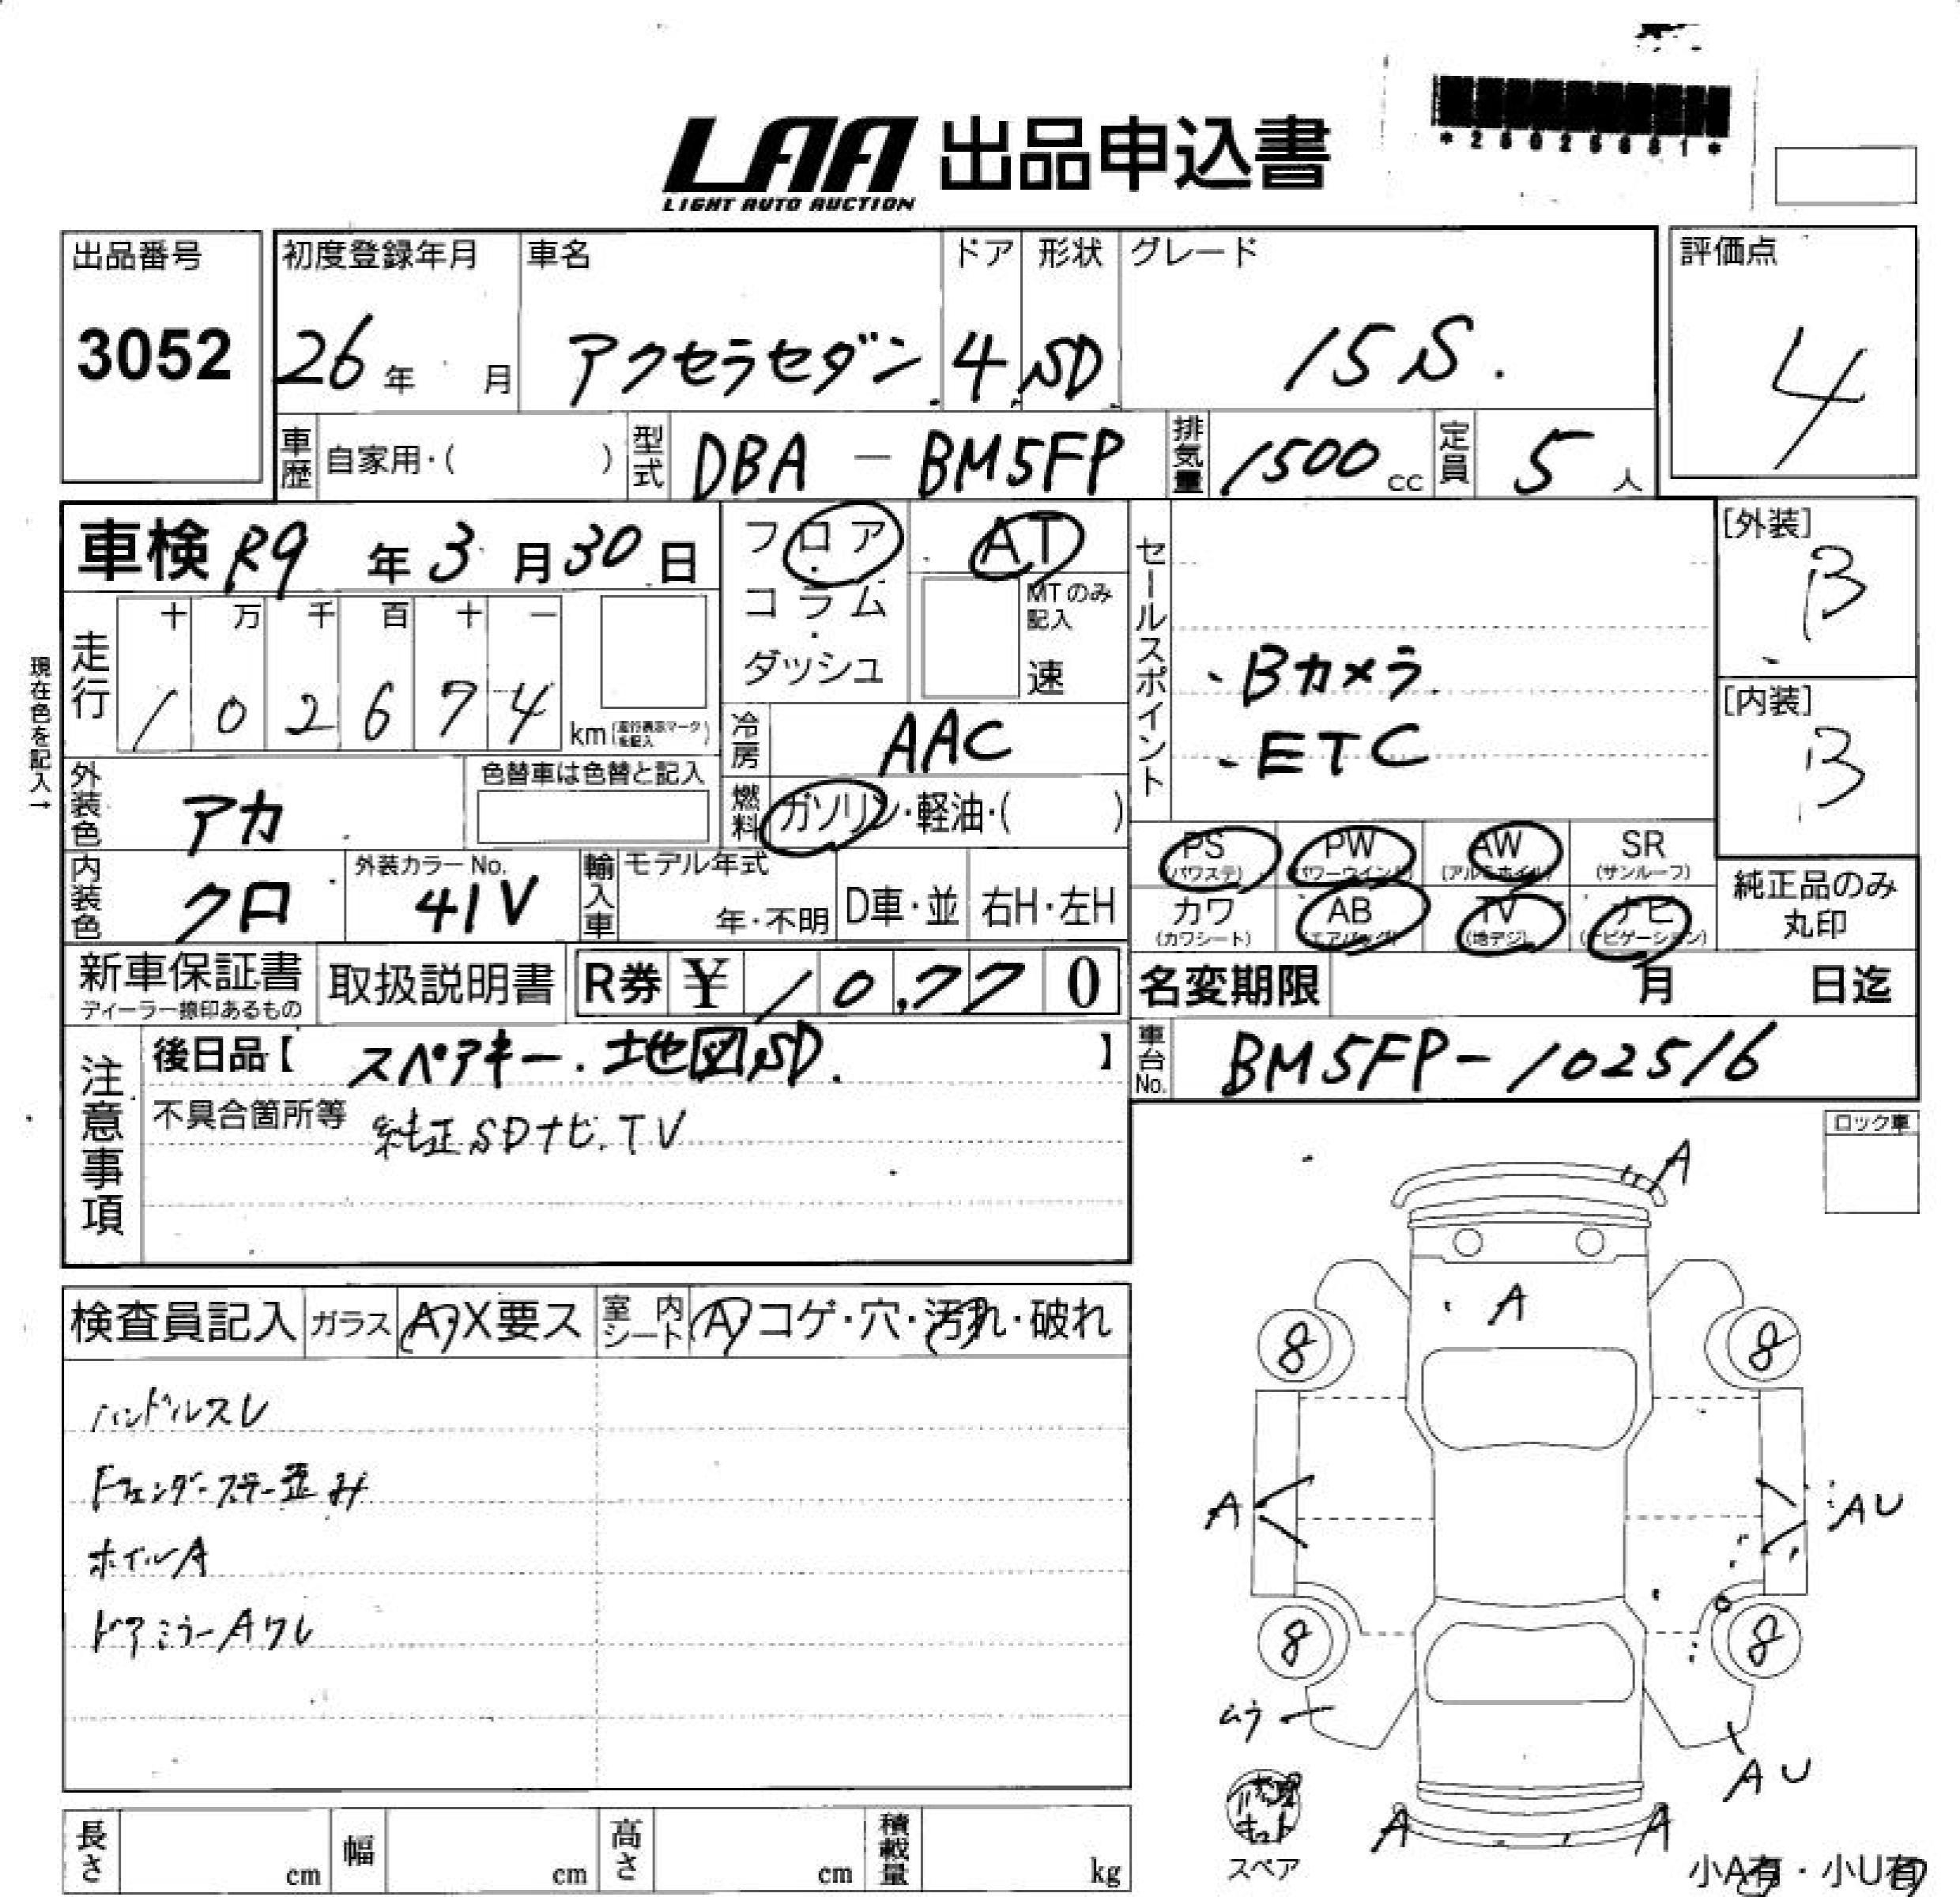 LAA 出品申込書
LIGHT AUTO AUCTION
出品番号
3052
初度登録年月
26年 月
車名
アクセラセダン
ドア
4
形状
SD
グレード
15S.
評価点
4
車歴 自家用・( )
型式 DBA - BM5FP
排気量 1500 cc
定員 5 人
車検 R9 年 3 月 30 日
フロア・コラム・ダッシュ
AT
MTのみ記入
速
走行
十 万 千 百 十 一
1 0 2 6 7 4 km (走行表示マークを記入)
現在色を記入→
冷房 AAC
燃料 ガソリン・軽油・( )
外装色 アカ
色替車は色替と記入
内装色 クロ
外装カラーNo. 41V
輸入車
モデル年式
年・不明
D車・並
右H・左H
セールスポイント
・Bカメラ
・ETC
[外装]
B
[内装]
B
PS (パワステ)
PW (パワーウインド)
AW (アルミホイル)
SR (サンルーフ)
カワ (カワシート)
AB (エアバッグ)
TV (地デジ)
ナビ (ナビゲーション)
純正品のみ丸印
新車保証書
ディーラー捺印あるもの
取扱説明書
R券 ¥ 10,770
名変期限 月 日迄
車台No. BM5FP-102516
注意事項
後日品【 スペアキー.地図SD. 】
不具合箇所等 純正SDナビ.TV
ロック車
検査員記入
ガラス A・X要ス
室内シート A・コゲ・穴・汚れ・破れ
ハンドルスレ
Fフェンダーステー歪み
ホイルA
ドアミラーAワレ
A
A
8
8
A
AU
8
8
ムラ
AU
A
A
修理キット
スペア
小A有・小U有
長さ cm
幅 cm
高さ cm
積載量 kg